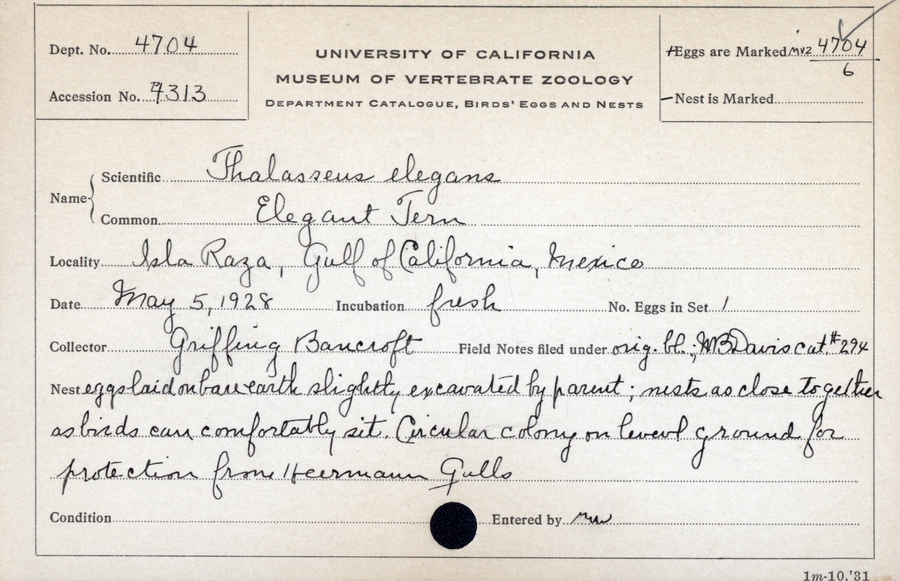 Dept. No. 4704
Accession No. 7313
UNIVERSITY OF CALIFORNIA
MUSEUM OF VERTEBRATE ZOOLOGY
DEPARTMENT CATALOGUE, BIRDS' EGGS AND NESTS
Eggs are Marked MVZ 4704
6
Nest is Marked
Name
Scientific Thalasseus elegans
Common Elegant Tern
Locality Isla Raza, Gulf of California, Mexico
Date May 5, 1928 Incubation fresh No. Eggs in Set 1
Collector Griffing Bancroft Field Notes filed under orig. bl.; MBDavis cat. #294
Nest eggs laid on bare earth slightly excavated by parent; nests as close together
as birds can comfortably sit. Circular colony on level ground for
protection from Heermann Gulls
Condition Entered by
1m-10,'31